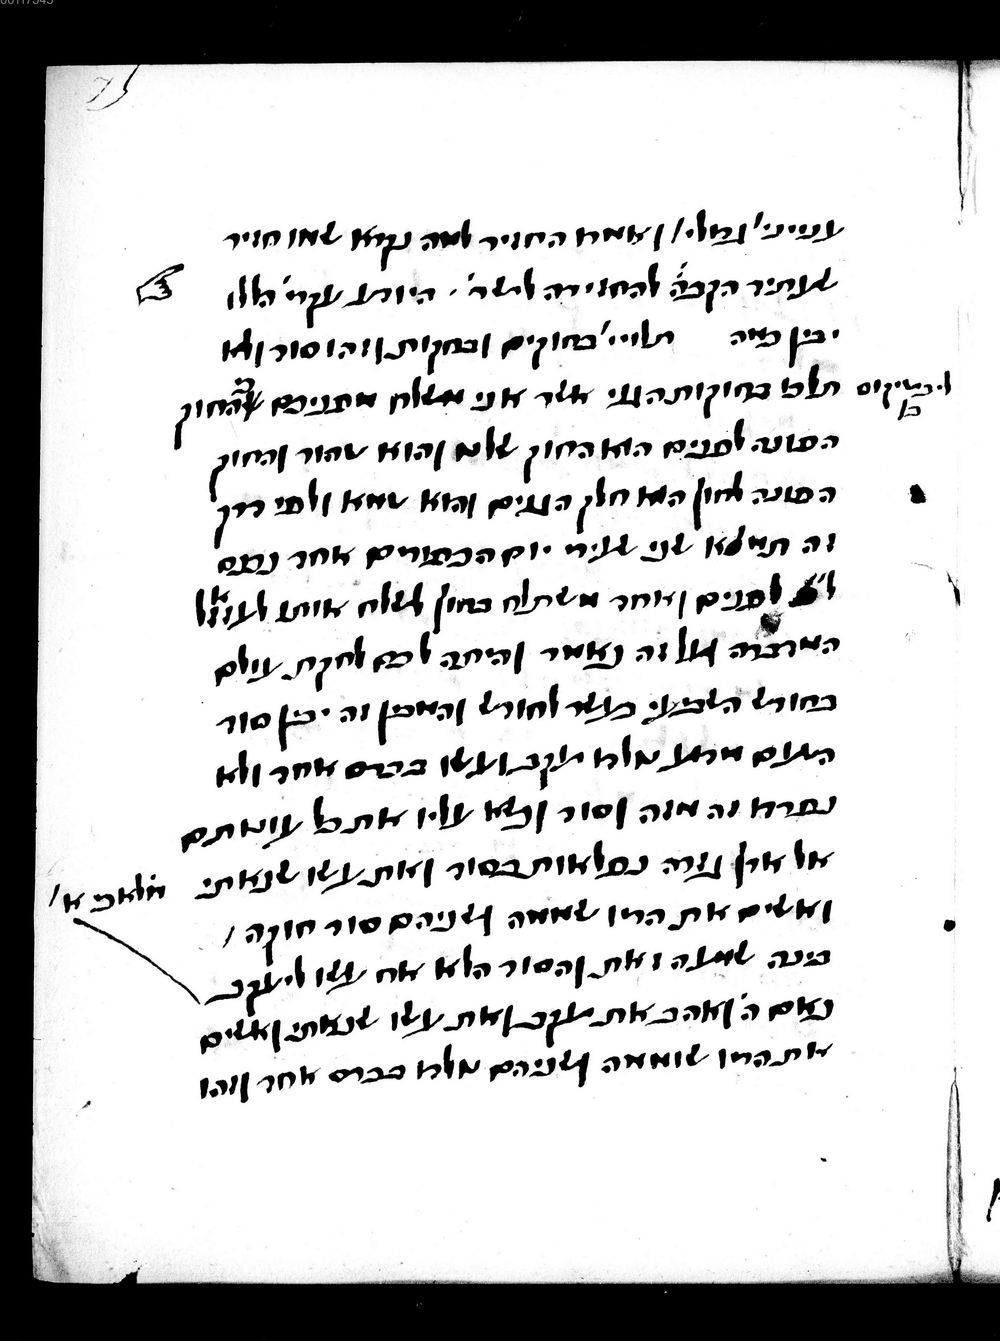 ענייני' נבדלי' ואמרו החזיר למה נקרא שמו חזיר
שעתיד הקב"ה להחזירה לישר'. היודע עקרי' הללו
יבין כמה תלויי' בחוקים ובחקות וזהו סוד ולא
תלכו בחוקות הגוי אשר אני משלח מפניכם שהחוק
ויקרא כ
הפונה לפנים הוא החוק שלם והוא טהור והחוק
הפונה לחוץ הוא חלק הגוים והוא טמא ולפי דרך
זה תמצא שני שעירי יום הכפורים אחד נכנס
לפנים ואחד משתלח בחוץ לשלח אותו לעזאזל
המדברה ועל זה נאמר והיתה לכם לחקת עולם
בחודש השביעי בעשר לחודש והמבין זה יבין סוד
היאך נולדו יעקב ועשו בכרס אחד ולא
נפרדו זה מזה וסוד ונשא עליו את כל עונותם
אל ארץ גזרה נפלאות בסוד ואת עשו שנאתי
מלאכי א'
ואשים את הריו שממה ושניהם סוד חוקה
בינה שמעה זאת והסוד הלא אח עשו ליעקב
נאם ה' ואהב את יעקב ואת עשו שנאתי ואשים
את הריו שוממה ושניהם נולדו בכרס אחד וזהו